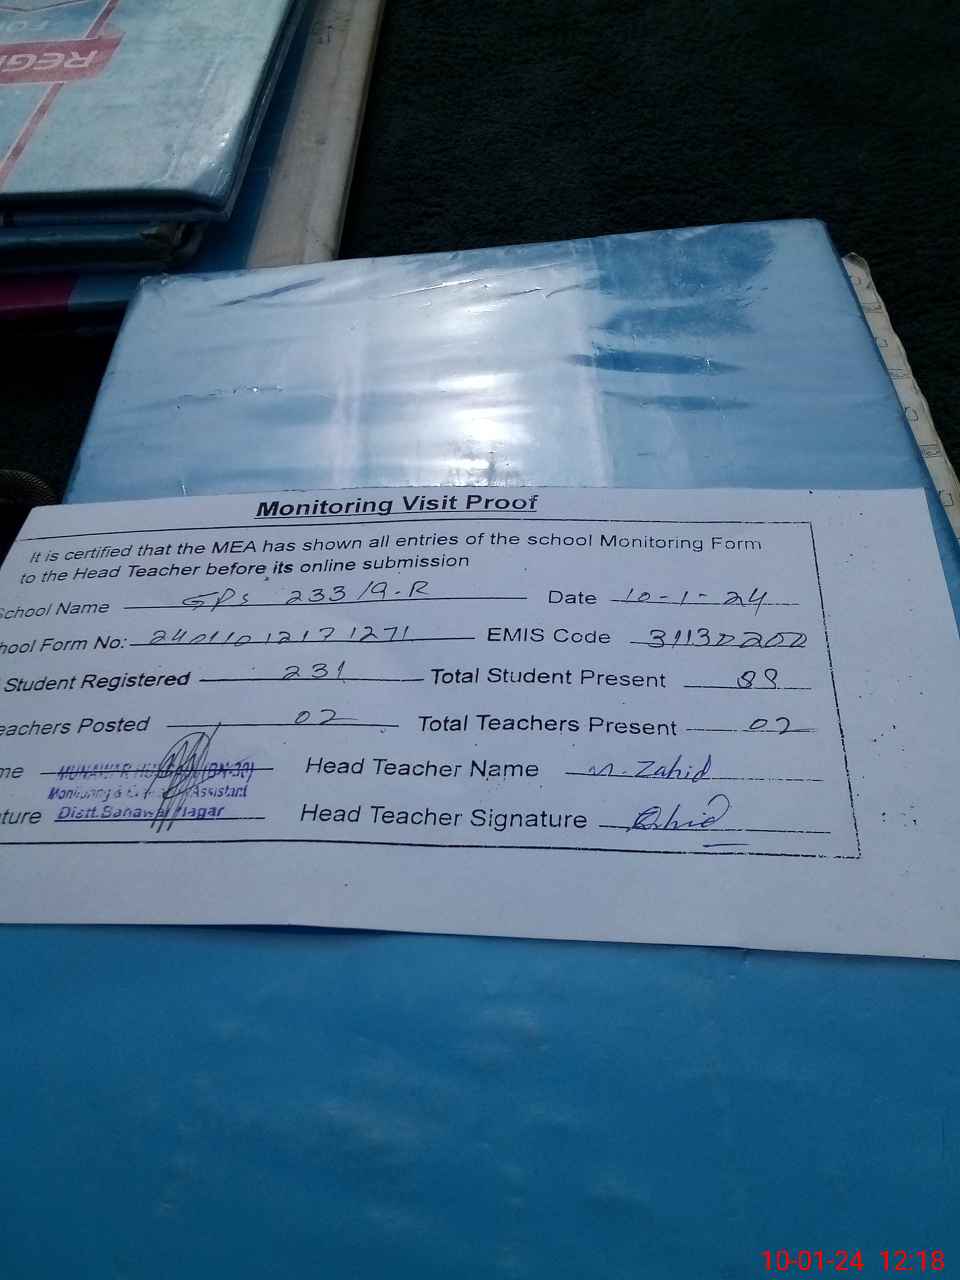 REG
Monitoring Visit Proof
It is certified that the MEA has shown all entries of the school Monitoring Form
to the Head Teacher before its online submission
School Name GPS 233/9-R Date 10-1-24
hool Form No: 2401101217 1271 EMIS Code 31130202
Student Registered 231 Total Student Present 88
eachers Posted 02 Total Teachers Present 02
me MUNAWAR (BN-30) Head Teacher Name M. Zahid
Monitoring & Assistant
ture Distt. Bahawalnagar Head Teacher Signature
10-01-24 12:18